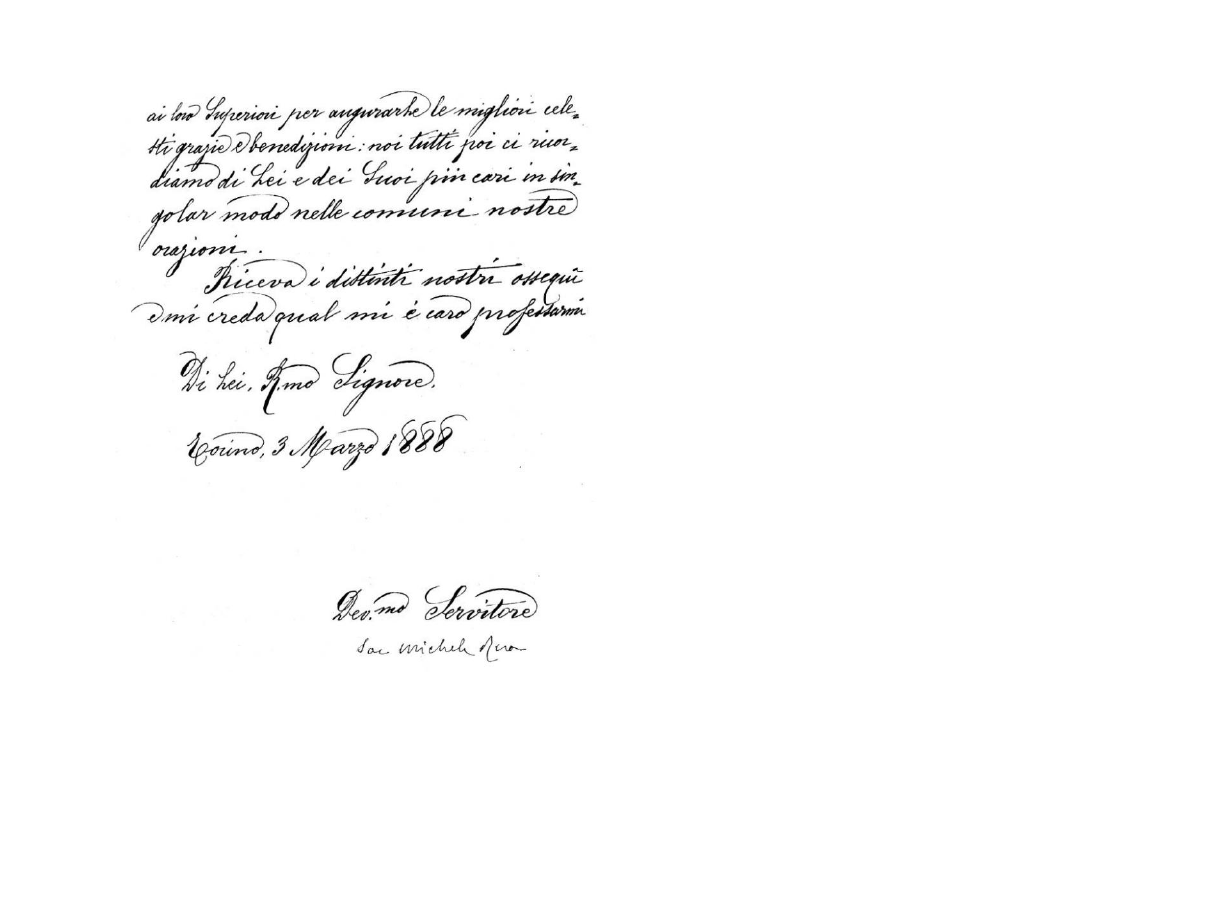 ai loro Superiori per augurarle le migliori cele=
sti grazie e benedizioni: noi tutti poi ci ricor=
diamo di Lei e dei Suoi più cari in sin=
golar modo nelle comuni nostre
orazioni.
Riceva i distinti nostri ossequii
e mi creda qual mi è caro professarmi
Di Lei, R.mo Signore.
Torino, 3 Marzo 1888
Dev.mo Servitore
Sac Michele Rua